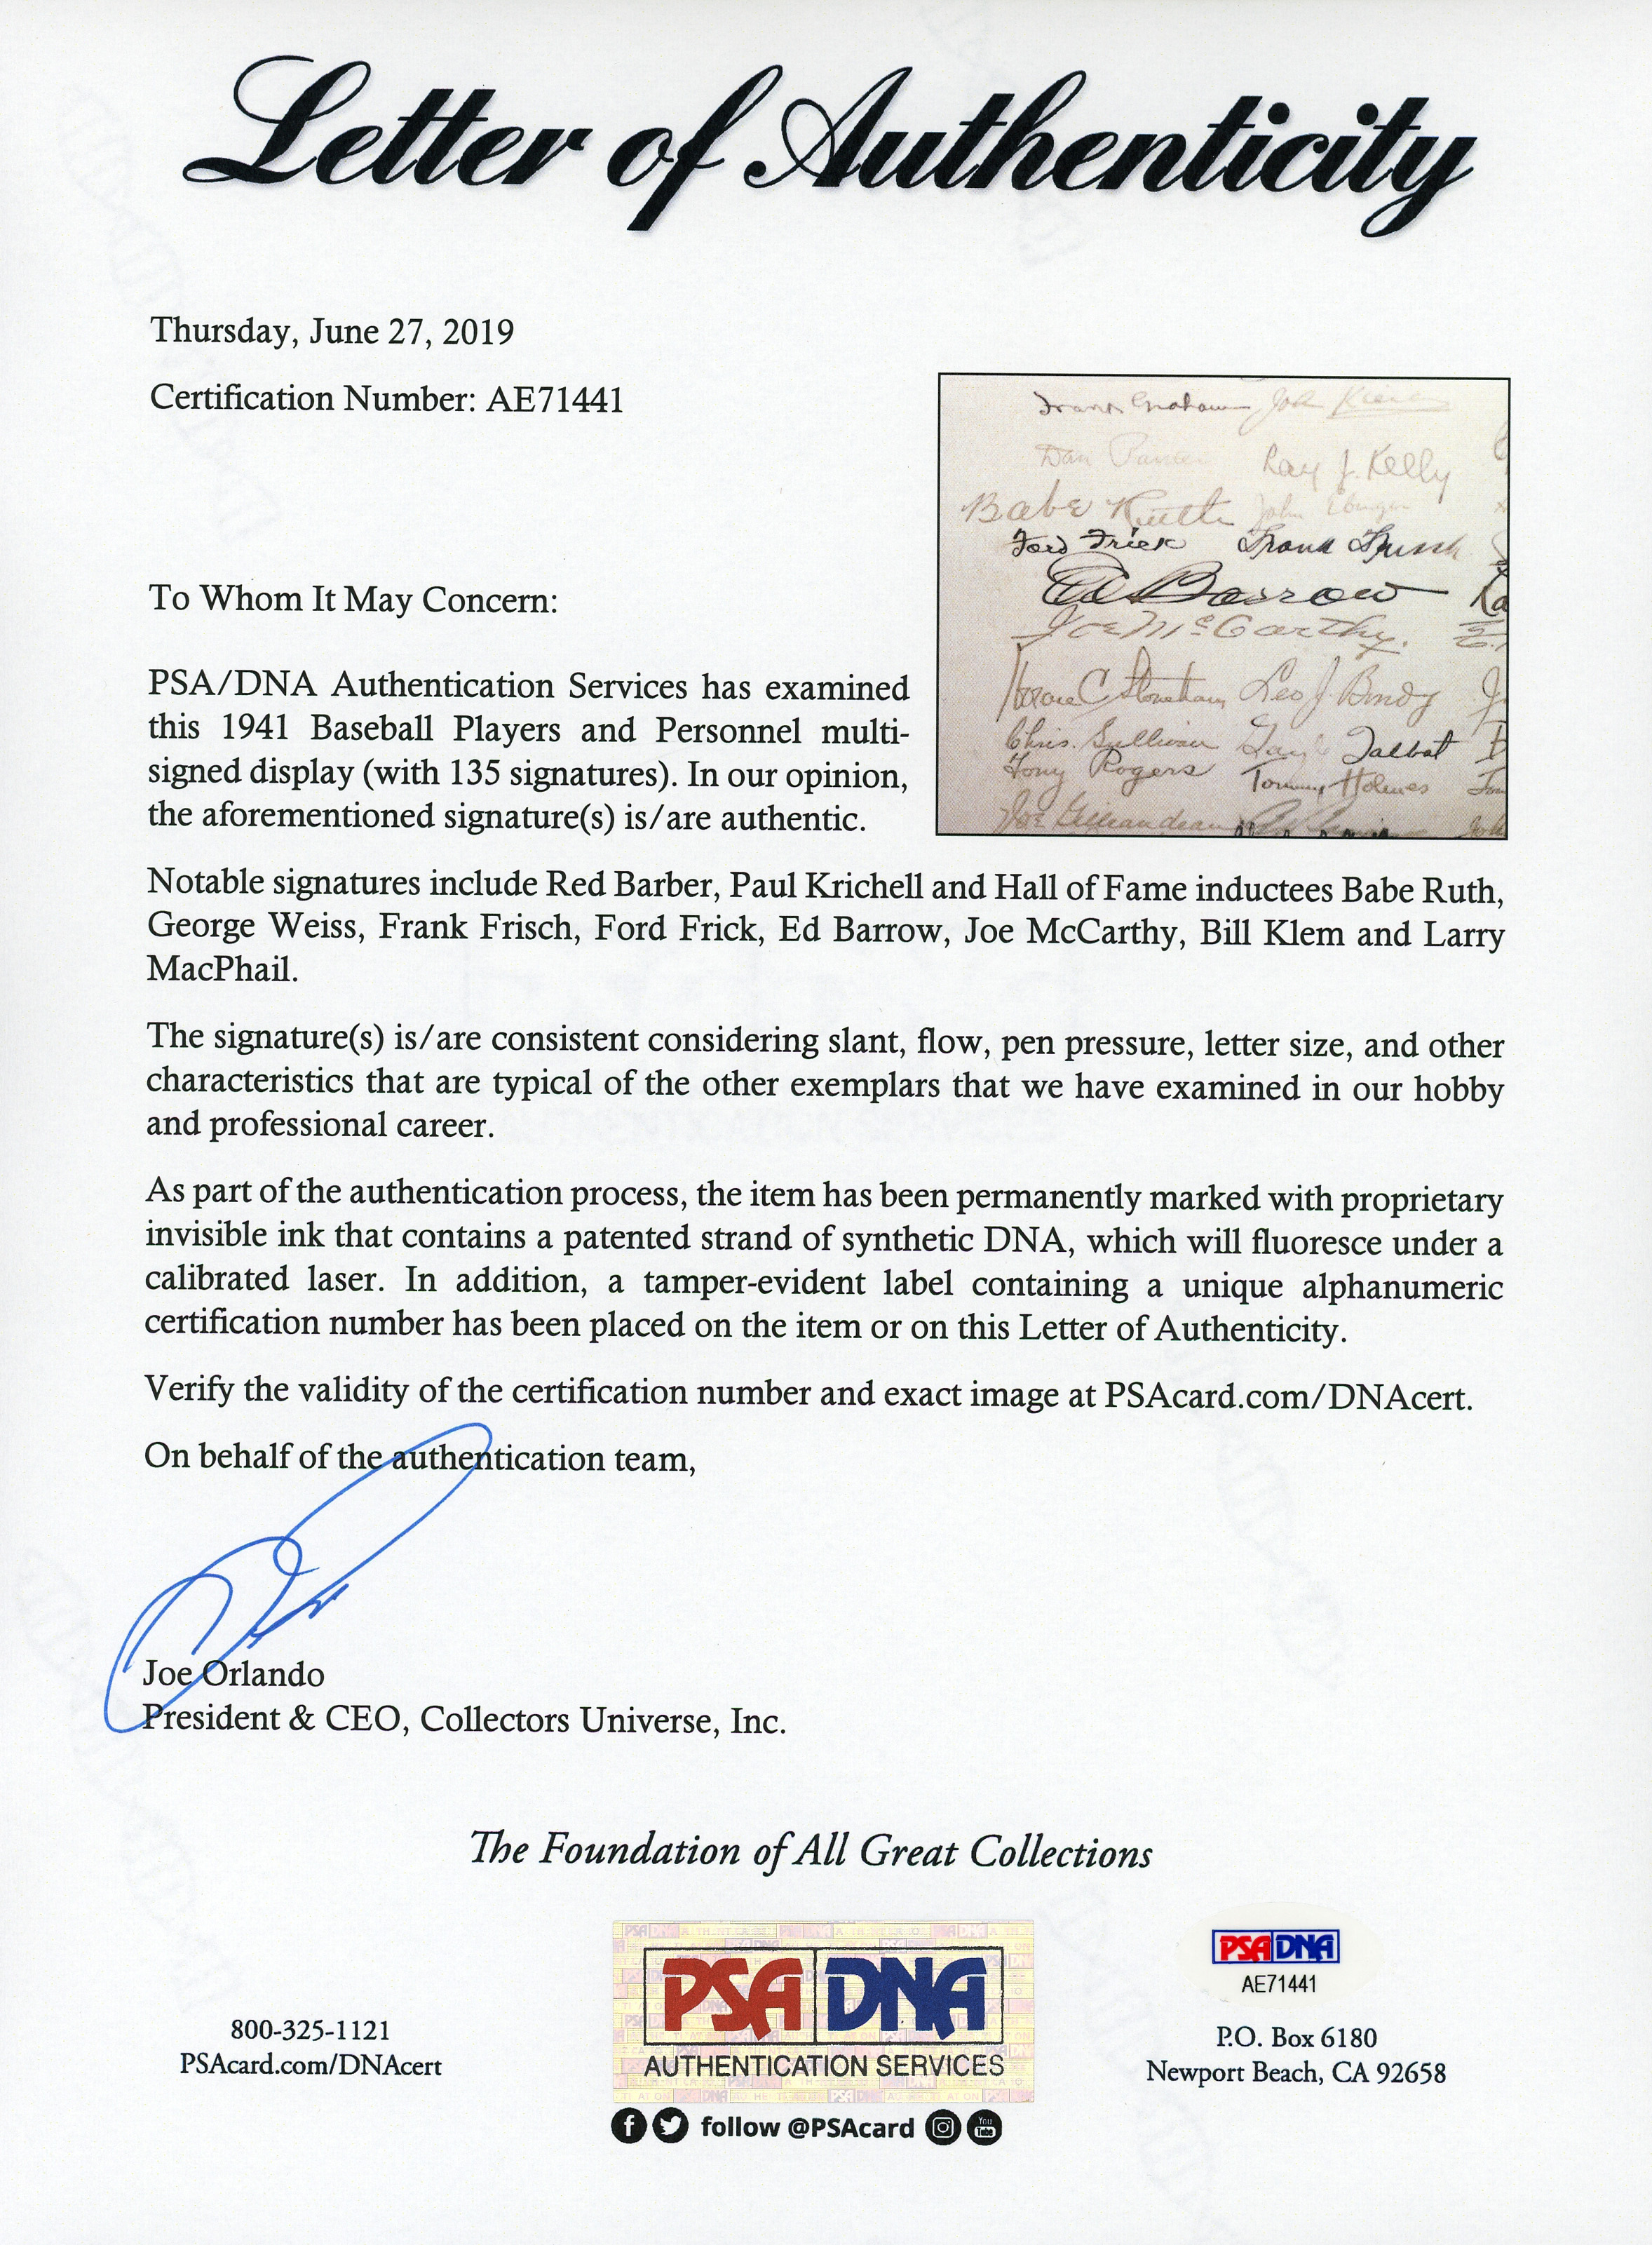 Letter of Authenticity
Thursday, June 27, 2019
Certification Number: AE71441
Frank Graham John Kieran
Dan Ray J. Kelly
Babe Ruth John
Ford Frick Frank Frisch
Ed Barrow
Joe McCarthy.
Horace C Stoneham Leo J. Bondy
Chris. Sullivan Gayle Talbot
Tony Rogers Tommy Holmes
Joe
To Whom It May Concern:
PSA/DNA Authentication Services has examined
this 1941 Baseball Players and Personnel multi-
signed display (with 135 signatures). In our opinion,
the aforementioned signature(s) is/are authentic.
Notable signatures include Red Barber, Paul Krichell and Hall of Fame inductees Babe Ruth,
George Weiss, Frank Frisch, Ford Frick, Ed Barrow, Joe McCarthy, Bill Klem and Larry
MacPhail.
The signature(s) is/are consistent considering slant, flow, pen pressure, letter size, and other
characteristics that are typical of the other exemplars that we have examined in our hobby
and professional career.
As part of the authentication process, the item has been permanently marked with proprietary
invisible ink that contains a patented strand of synthetic DNA, which will fluoresce under a
calibrated laser. In addition, a tamper-evident label containing a unique alphanumeric
certification number has been placed on the item or on this Letter of Authenticity.
Verify the validity of the certification number and exact image at PSAcard.com/DNAcert.
On behalf of the authentication team,
Joe Orlando
President & CEO, Collectors Universe, Inc.
The Foundation of All Great Collections
800-325-1121
PSAcard.com/DNAcert
PSA DNA
AUTHENTICATION SERVICES
follow @PSAcard
You
Tube
PSA DNA
AE71441
P.O. Box 6180
Newport Beach, CA 92658